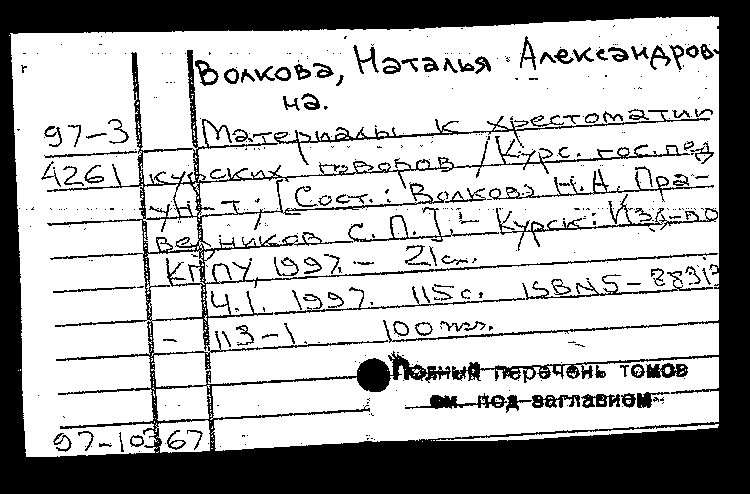 Волкова, Наталья Александров-
на.
97-3 Материалы к хрестоматии
4261 курских говоров / Курс. гос. пед
ун-т; [Сост.: Волкова Н.А., Пра-
ведников С.П.]. - Курск: Изд-во
КГПУ, 1997. - 21 см.
Ч.1. 1997. 115 с. ISBN 5-88313
- 113-1. 100 экз.
Полный перечень томов
см. под заглавием
97-10367